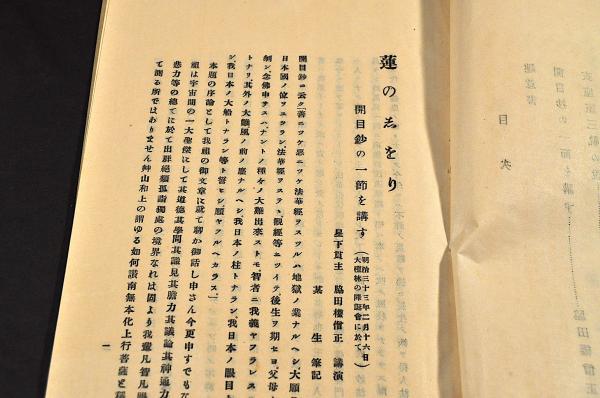 蓮のしをり
開目鈔の一節を講す（明治三十三年二月十六日大檀林の降誕會に於て）
脇田權僧正 講演
某生 筆記
開目鈔ニ云ク「善ニツケ惡ニツケ法華經ヲスツルハ地獄ノ業ナルヘシ、大願
日本國ノ位ヲユヅラン、法華經ヲステヽ、觀經等ニツイテ後生ヲ期セヨ、父母
刎ン、念佛申サスハ、ナントノ種々ノ大難出來ストモ智者ニ我義ヤフラレス
トナリ、其外ノ大難風ノ前ノ塵ナルヘシ、我日本ノ柱トナラン、我日本ノ眼目
シ、我日本ノ大船トナラン等ト誓ヒシ願ヤフルヘカラス」
本題の序論として我祖の御文章に就て聊か御話し申さん今更申すでもな
祖は宇宙間の一大聖傑にして其道德其學問其識見其膽力其議論其神通力
悲力等の總てに於て出群絶類孤謟獨處の境界なれは固より我輩凡智凡
て測る所ではありません艸山和上の謂ゆる如何讃南無本化上行菩薩と
一
目次
開目鈔の一節を講す
脇田權僧正